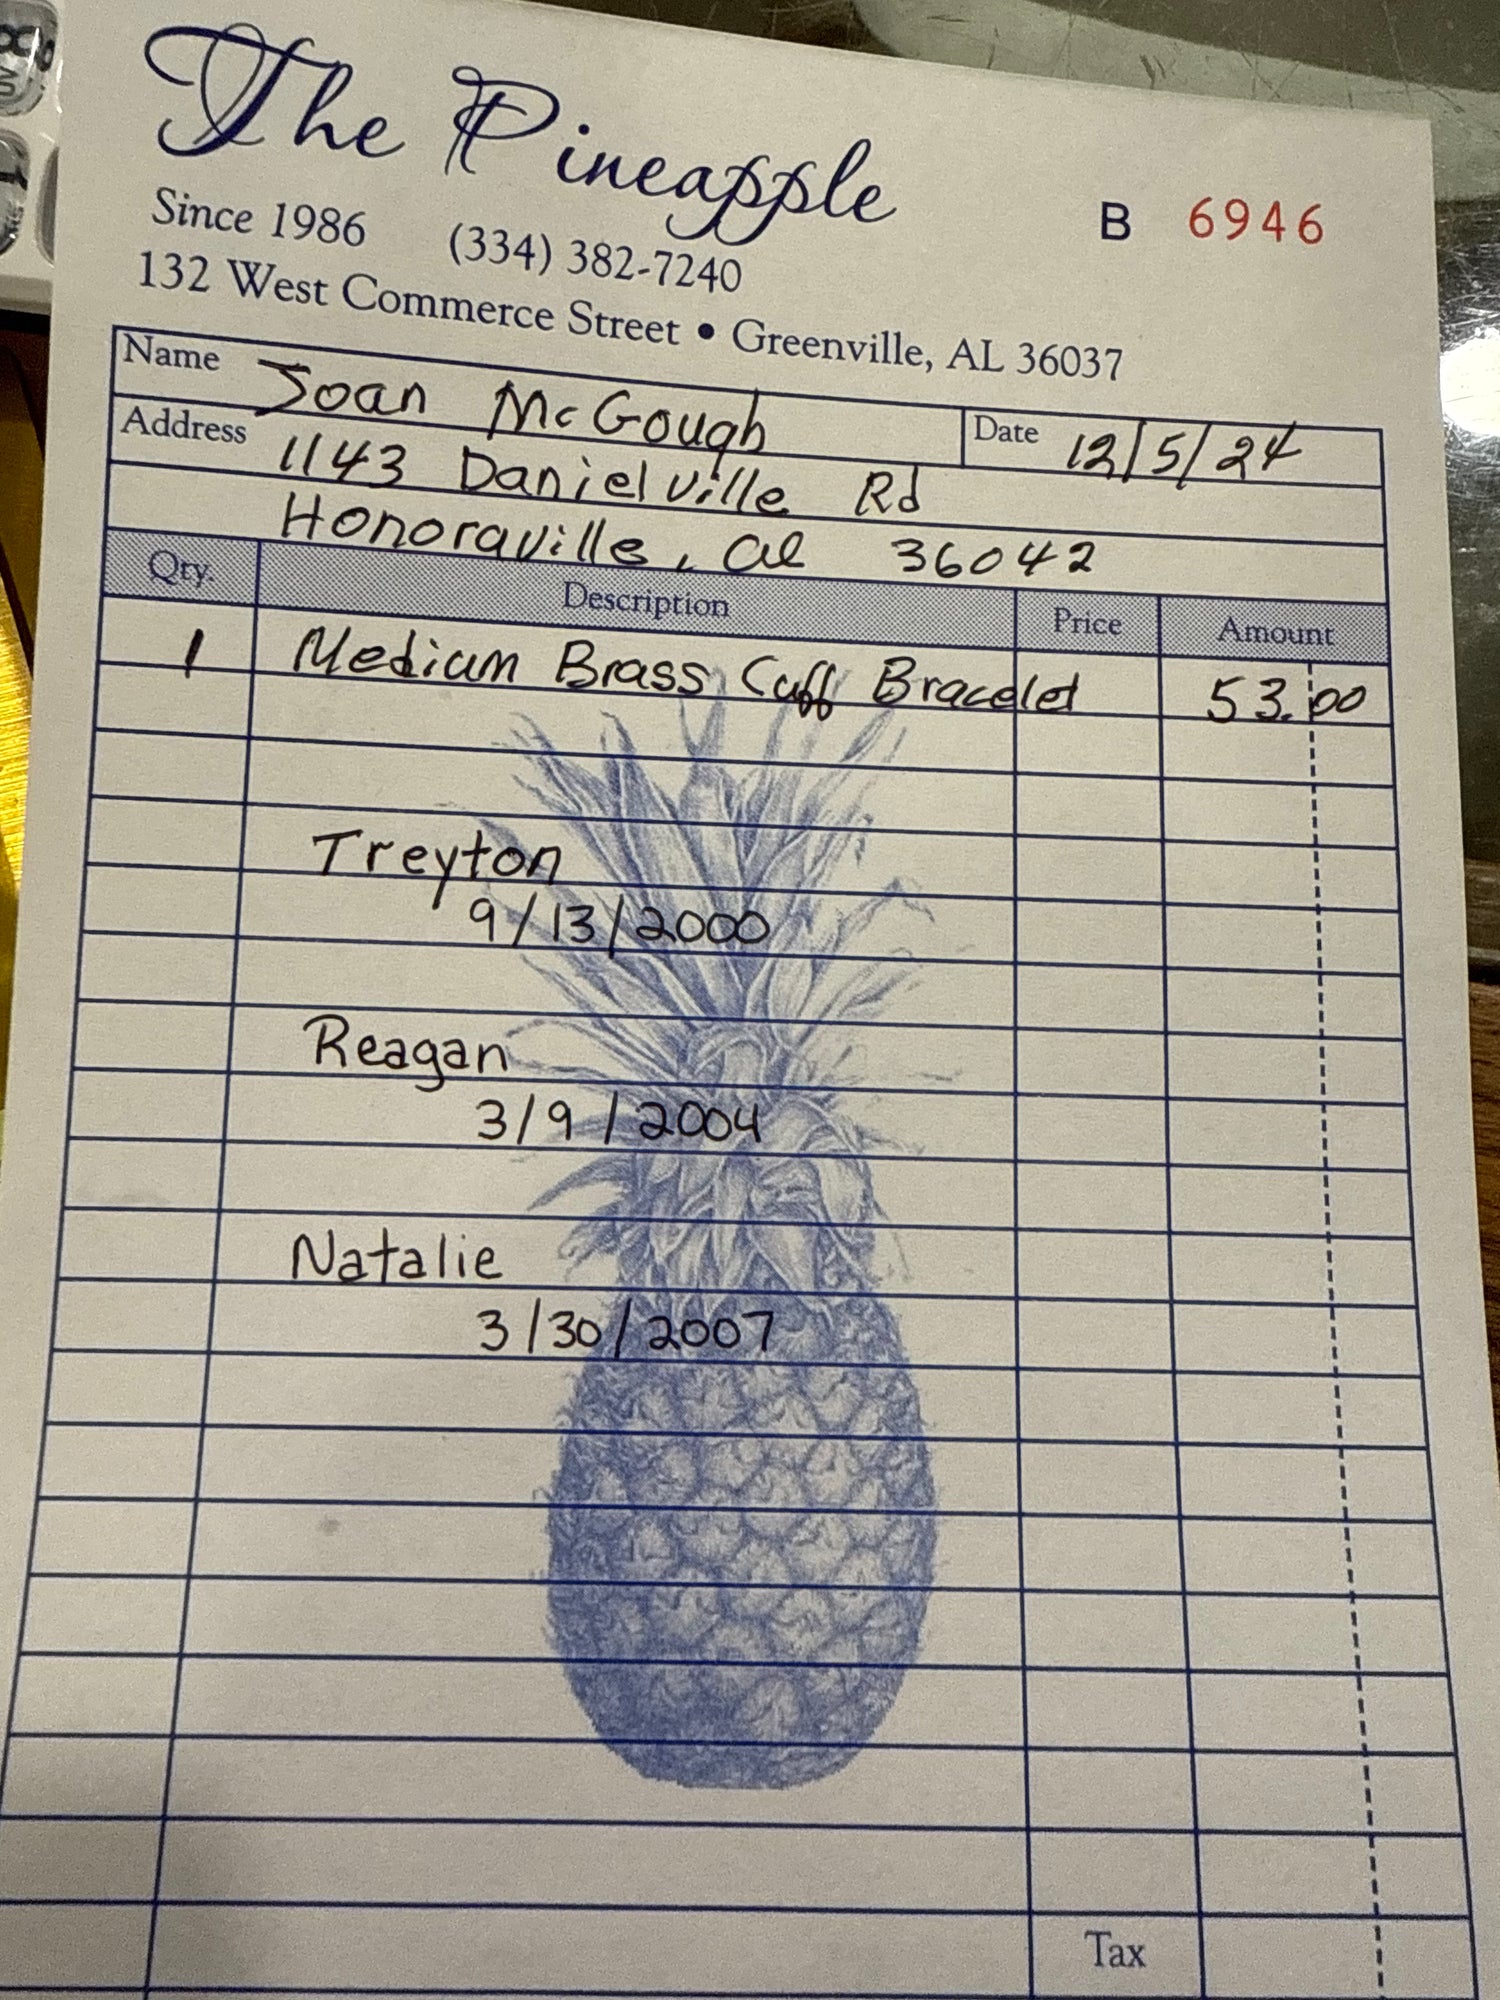 The Pineapple
B 6946
Since 1986 (334) 382-7240
132 West Commerce Street • Greenville, AL 36037
Name Joan McGough Date 12/5/24
Address 1143 Danielville Rd
Honoraville, Al 36042
Qty. Description Price Amount
1 Medium Brass Cuff Bracelet 53.00
Treyton
9/13/2000
Reagan
3/9/2004
Natalie
3/30/2007
Tax